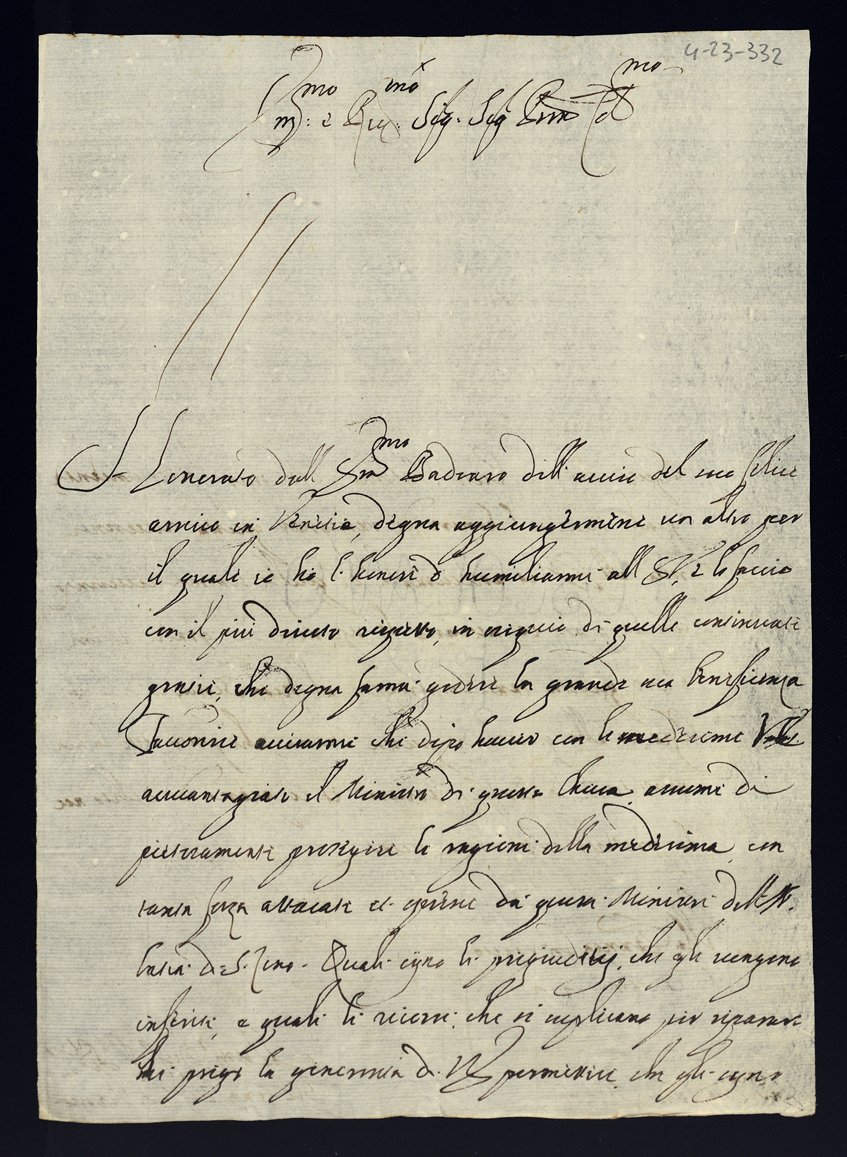 4-23-332
Em:mo e Rev:mo Sig. Sig Pron Col:mo
Honorato dall Em:mo Badoaro dell' aviso del suo felice
arrivo in Venetia, degna aggiungermene un altro per
il quale io ho l' honere d' humiliarmi all' EV, e lo faccio
con il più divoto rispetto, in ossequio di quelle continuate
gratie, che degna farmi godere la grande sua beneficenza
avvisarmi che dopo haver con le medesime
avvantagiato il Ministro di questa Chiesa, assume di
pietosamente protegere le ragioni della medesima, con
tanta forza attacate et oppresse da questi Ministri dell'
di S. Zeno. Quali siano li pregiuditij, che gli vengono
inferiti, e quali li ricorsi, che si implicano per riparare
prego la generosità di VE permettere, che gli